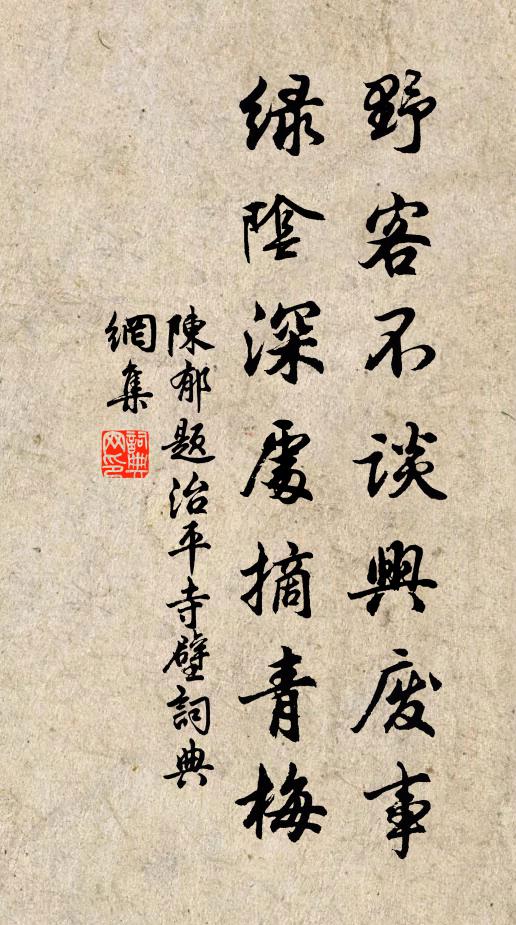 野客不談興廢事
綠陰深處摘青梅
陳郁題治平寺壁詞典
網集
詞典
网印